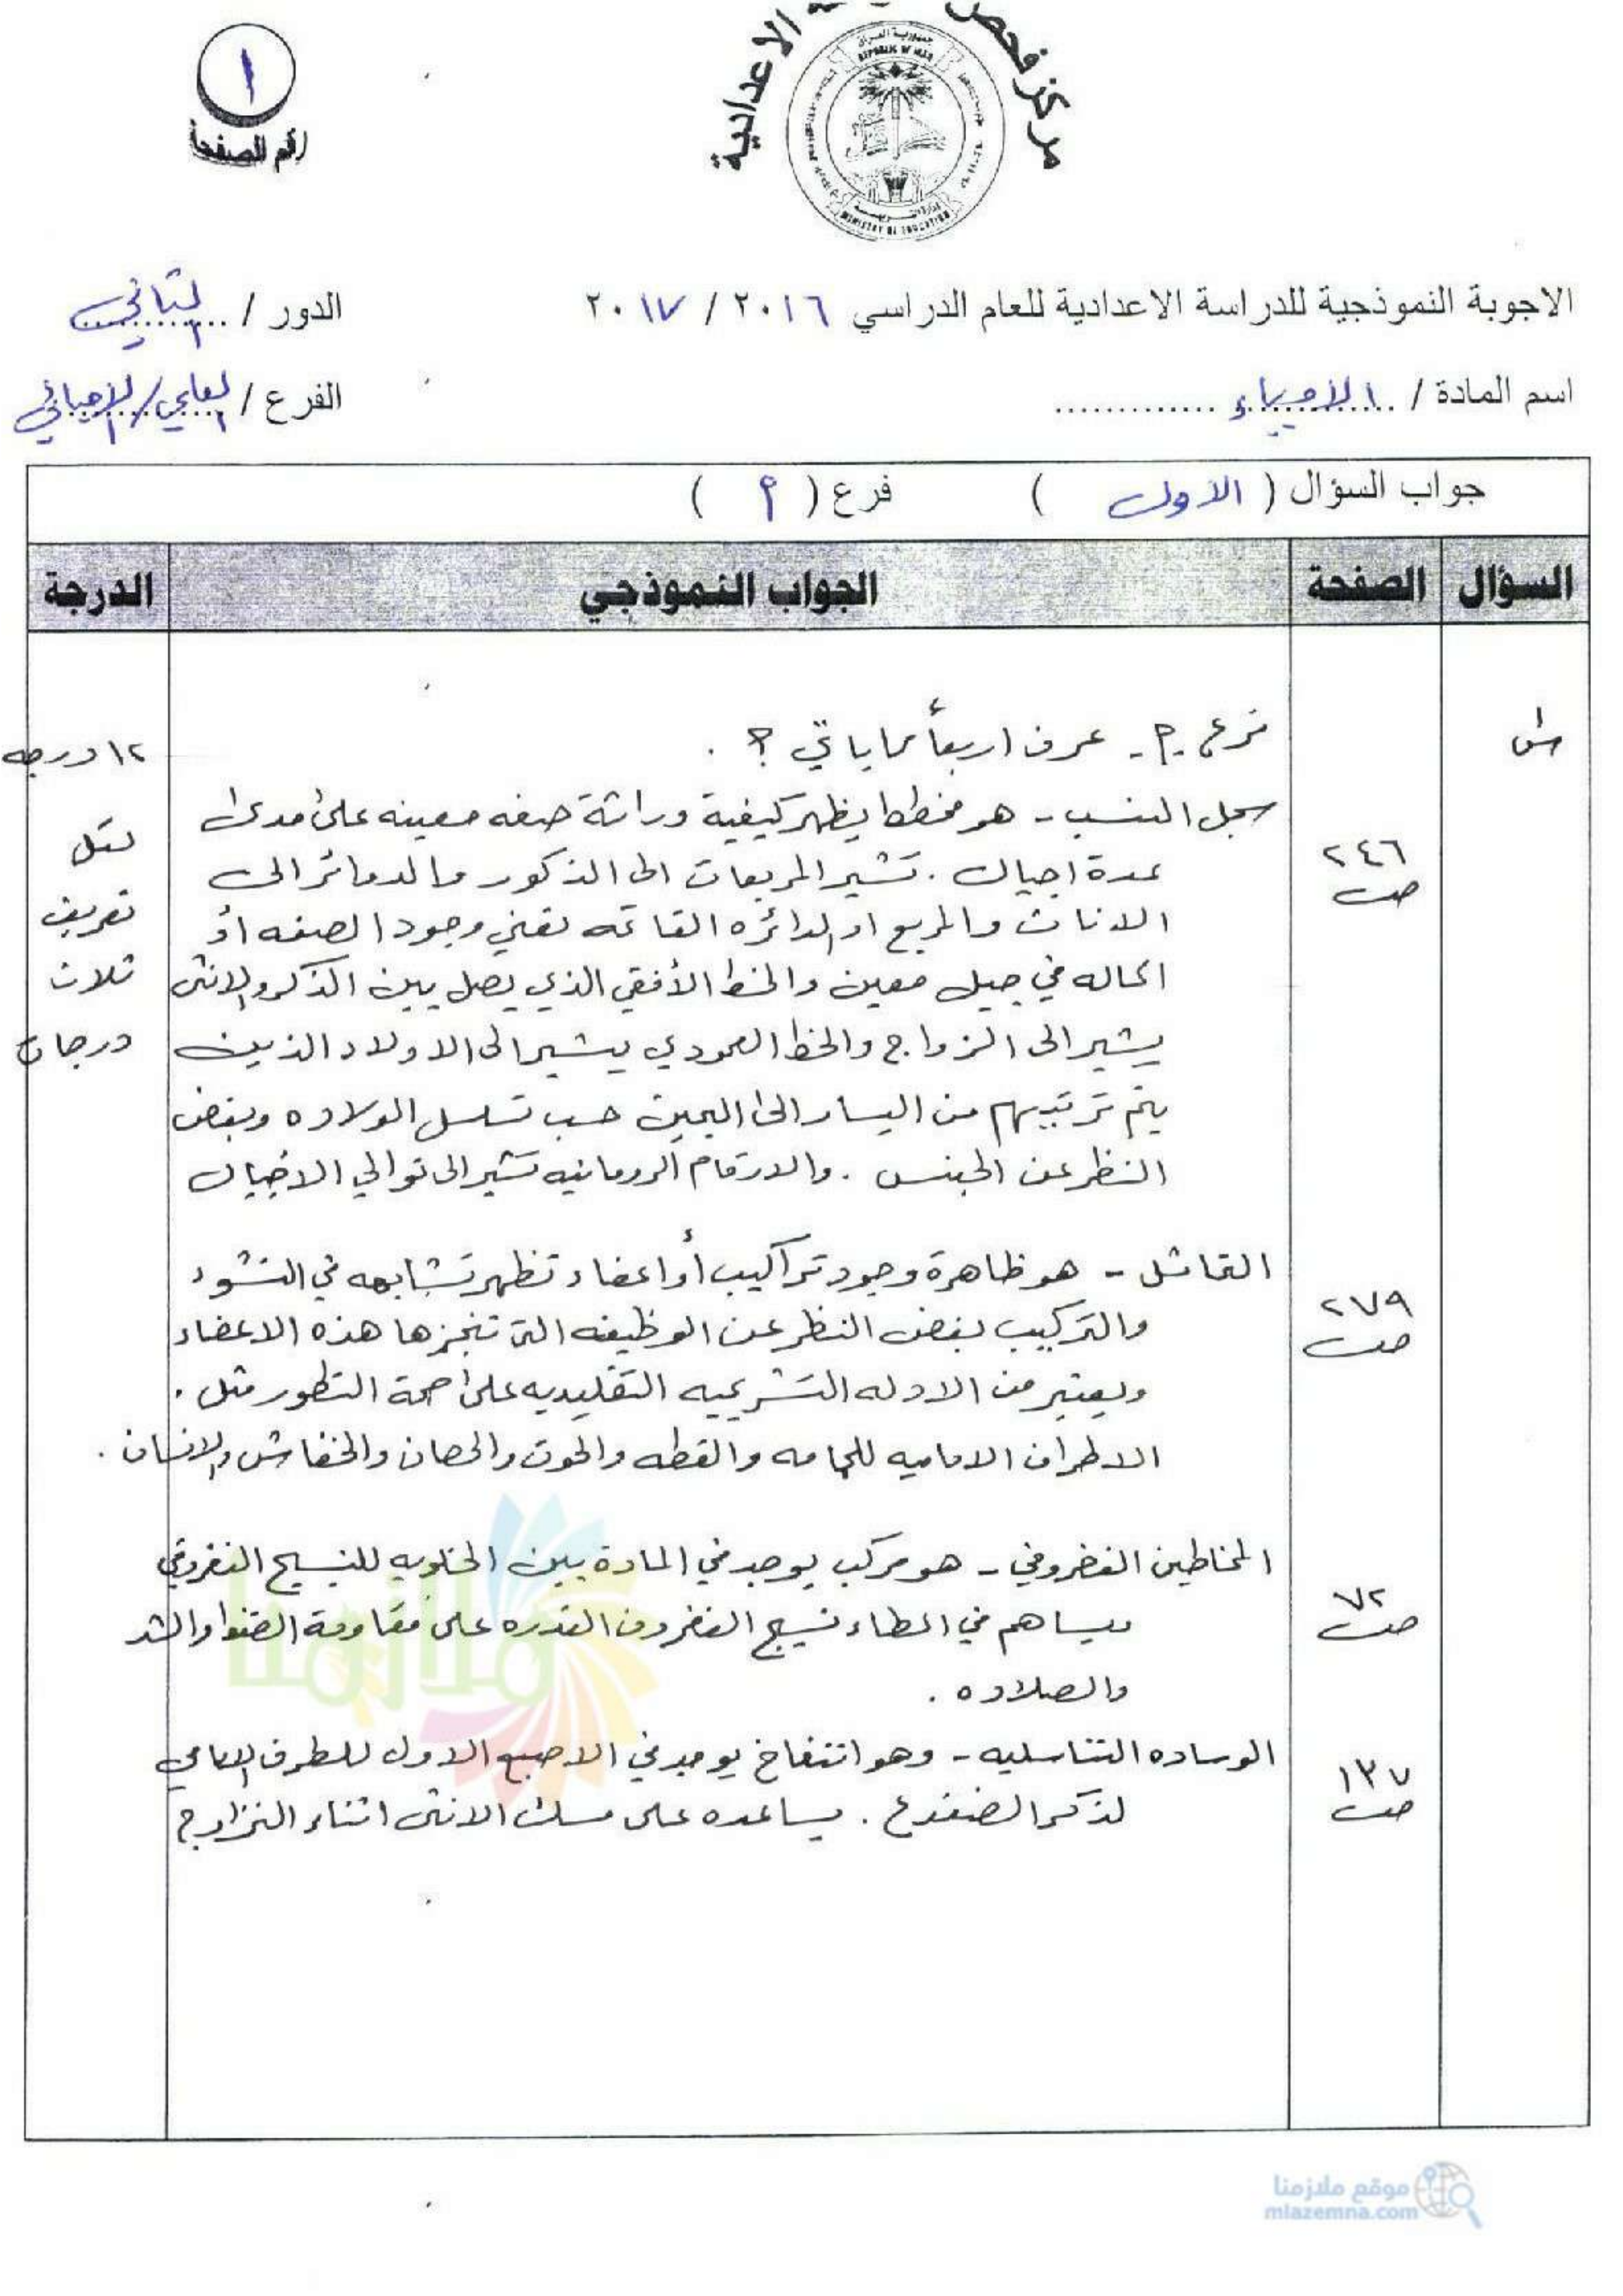 مركز فحص
الاعدادية
جمهورية العراق
REPUBLIC OF IRAQ
وزارة التربية
MINISTRY OF EDUCATION
١
رقم الصفحة
الاجوبة النموذجية للدراسة الاعدادية للعام الدراسي ٢٠١٦ / ٢٠١٧
الدور / الثاني
اسم المادة / الاحياء
الفرع / العلمي/الاحيائي
جواب السؤال ( الاول ) فرع ( أ )
السؤال الصفحة الجواب النموذجي الدرجة
س١
فرع - أ - عرف اربعاً مما يأتي ؟ .
١٢ درجه
سجل النسب - هو مخطط يظهر كيفية وراثة صفه معينه على مدى
٢٤٦
ص
عدة اجيال . تشير المربعات الى الذكور والدوائر الى
الاناث والمربع او الدائره القاتمه تعني وجود الصفه او
الحاله في جيل معين والخط الأفقي الذي يصل بين الذكر والانثى
يشير الى الزواج والخط العمودي يشير الى الاولاد الذين
يتم ترتيبهم من اليسار الى اليمين حسب تسلسل الولاده وبغض
النظر عن الجنس . والارقام الرومانيه تشير الى توالي الاجيال
لكل
تعريف
ثلاث
درجات
التماثل - هو ظاهرة وجود تراكيب أو اعضاء تظهر تشابهه في النشوء
٢٧٩
ص
والتركيب بغض النظر عن الوظيفه التي تنجزها هذه الاعضاء
ويعتبر من الادله التشريحيه التقليديه على صحة التطور مثل .
الاطراف الاماميه للحمامه والقطه والحوت والحصان والخفاش والانسان .
المخاطين الغضروفي - هو مركب يوجد في المادة بين الخلويه للنسيج الغضروفي
٧٢
ص
ويساهم في اعطاء نسيج الغضروف القدره على مقاومة الضغط والشد
والصلاده .
الوساده التناسليه - وهو انتفاخ يوجد في الاصبع الاول للطرف الامامي
١٣٧
ص
لذكر الضفدع . يساعده على مسك الانثى اثناء التزاوج
ملازمنا
موقع ملازمنا
mlazemna.com